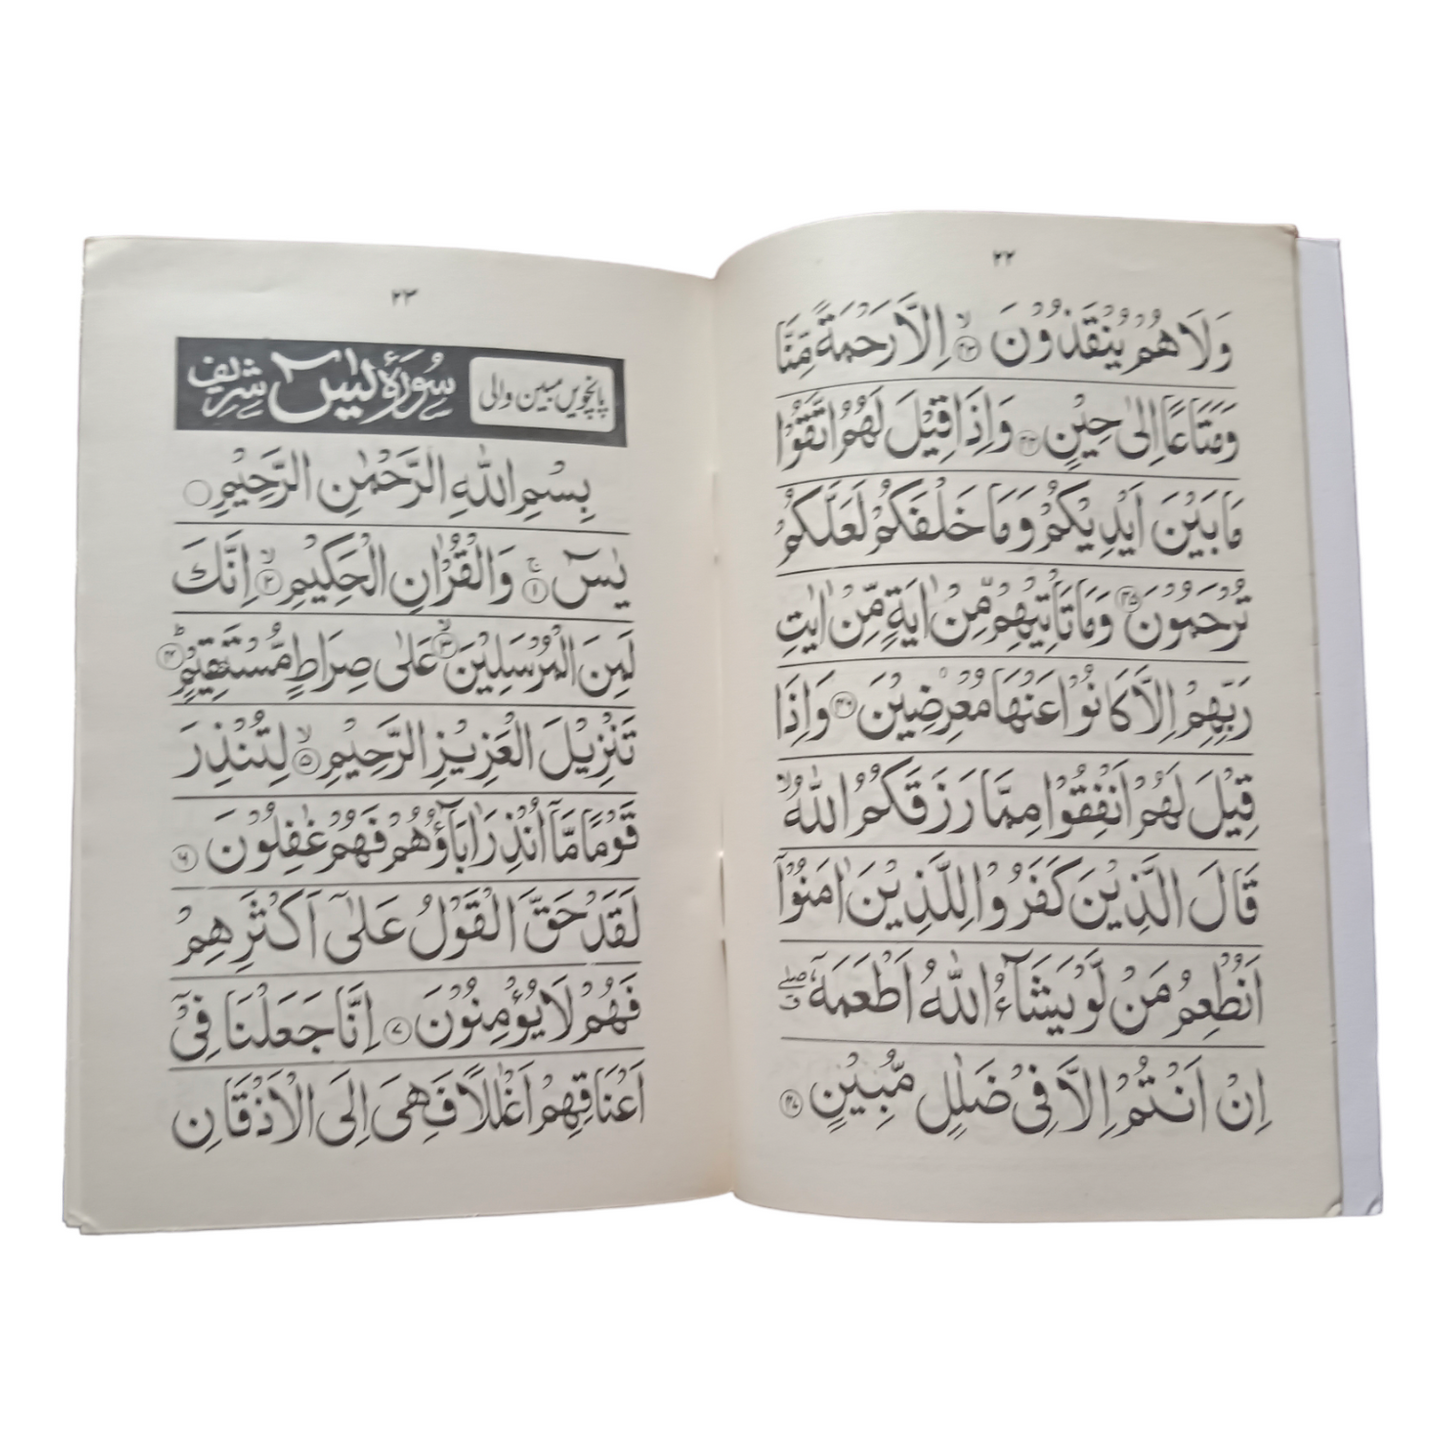 ٢٢
وَلَا هُمْ يُنْقَذُوْنَ ۙ﴿٤٣﴾ اِلَّا رَحْمَةً مِّنَّا
وَمَتَاعًا اِلٰى حِيْنٍ ﴿٤٤﴾ وَاِذَا قِيْلَ لَهُمُ اتَّقُوْا
مَا بَيْنَ اَيْدِيْكُمْ وَمَا خَلْفَكُمْ لَعَلَّكُمْ
تُرْحَمُوْنَ ﴿٤٥﴾ وَمَا تَاْتِيْهِمْ مِّنْ اٰيَةٍ مِّنْ اٰيٰتِ
رَبِّهِمْ اِلَّا كَانُوْا عَنْهَا مُعْرِضِيْنَ ﴿٤٦﴾ وَاِذَا
قِيْلَ لَهُمْ اَنْفِقُوْا مِمَّا رَزَقَكُمُ اللّٰهُ ۙ
قَالَ الَّذِيْنَ كَفَرُوْا لِلَّذِيْنَ اٰمَنُوْٓا
اَنُطْعِمُ مَنْ لَّوْ يَشَآءُ اللّٰهُ اَطْعَمَهٗٓ ۖ ق
اِنْ اَنْتُمْ اِلَّا فِيْ ضَلٰلٍ مُّبِيْنٍ ﴿٤٧﴾
٢٣
پانچویں مبین والی سُورَۃ یٰسٓ شریف
بِسْمِ اللّٰهِ الرَّحْمٰنِ الرَّحِيْمِ
يٰسٓ ۚ﴿١﴾ وَالْقُرْاٰنِ الْحَكِيْمِ ۙ﴿٢﴾ اِنَّكَ
لَمِنَ الْمُرْسَلِيْنَ ۙ﴿٣﴾ عَلٰى صِرَاطٍ مُّسْتَقِيْمٍ ؕ﴿٤﴾
تَنْزِيْلَ الْعَزِيْزِ الرَّحِيْمِ ۙ﴿٥﴾ لِتُنْذِرَ
قَوْمًا مَّآ اُنْذِرَ اٰبَآؤُهُمْ فَهُمْ غٰفِلُوْنَ ﴿٦﴾
لَقَدْ حَقَّ الْقَوْلُ عَلٰٓى اَكْثَرِهِمْ
فَهُمْ لَا يُؤْمِنُوْنَ ﴿٧﴾ اِنَّا جَعَلْنَا فِيْٓ
اَعْنَاقِهِمْ اَغْلٰلًا فَهِىَ اِلَى الْاَذْقَانِ